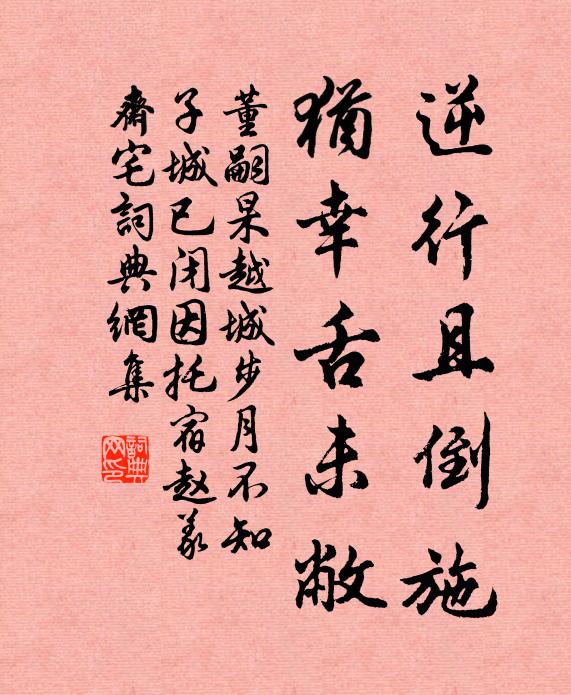 逆行且倒施
猶幸舌未敝
董嗣杲越城步月不知
子城已闭因托宿赵义
齋宅詞典網集
詞典网印